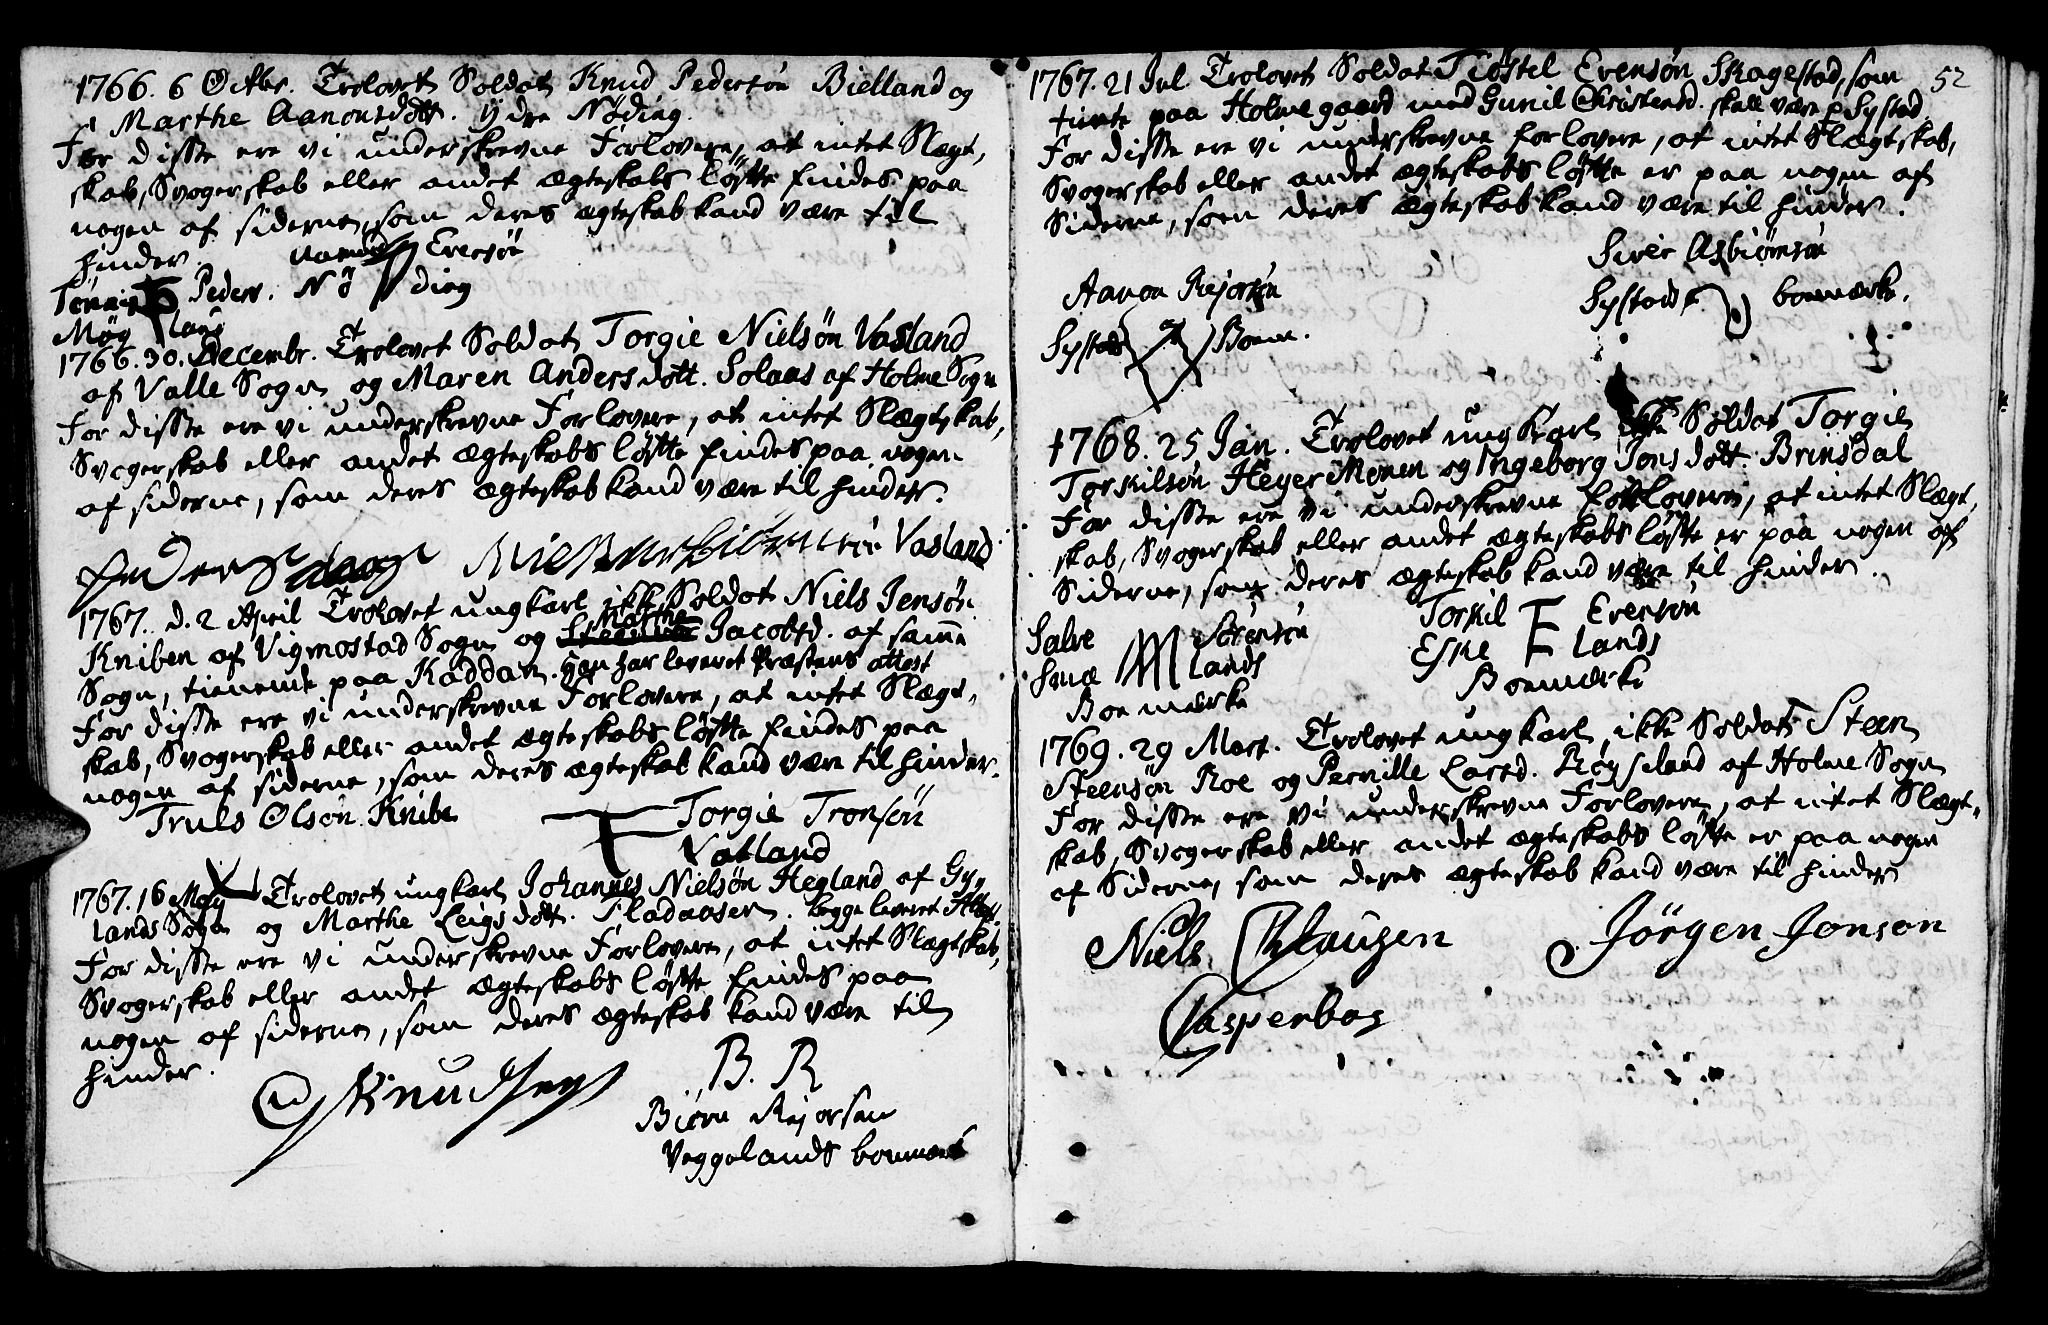 1766. 6 Octbr. Trolovet Soldat Knud Pedersøn Bielland og
Marthe Aanonsdott. ydre Nøding.
For disse ere vi underskrevne Forlovere, at intet Slægt,
skab, Svogerskab eller andet ægteskabs løfte findes paa
nogen af siderne, som deres ægteskab kand være til
hinder.
Evensøn
Tønnis Peders. Nø ding
Møg land
1766. 30. Decembr. Trolovet Soldat Torgie Nielsøn Vasland
af Valle Sogn og Maren Andersdott. Solaas af Holme Sogn
For disse ere vi underskrevne Forlovere, at intet Slægtskab,
Svogerskab eller andet ægteskabs løfte findes paa nogen
af siderne, som deres ægteskab kand være til hinder.
Vasland
1767. d. 2 April Trolovet ungkarl ikke Soldat Niels Jensøn
Kniben af Vigmostad Sogn og Marthe Jacobsd. af samme
Sogn, tienende paa Kaddan. han har leveret Præstens attest
For disse ere vi underskrevne Forlovere, at intet Slægt-
skab, Svogerskab eller andet ægteskabs løfte findes paa
nogen af siderne, som deres ægteskab kand være til hinder.
Truls Olsøn Knibe Torgie Tronsøn
Vatland
1767. 16 May Trolovet ungkarl Johannes Nielsøn Hegland af Gy,,
lands Sogn og Marthe Leigsdott. Fladaasen. begge leveret Attest.
For disse ere vi underskrevne Forlovere, at intet Slægtskab,
Svogerskab eller andet ægteskabs løfte findes paa
nogen af siderne, som deres ægteskab kand være til
hinder.
Knudsen B. R
Biørn Rejorsen
Veggelands boemærke
52
1767. 21 Jul Trolovet Soldat Tiøstel Evensøn Skagestad, som
tiente paa Holmegaard med Gunil Christensd. skall være f. Systad
For disse ere vi underskrevne Forlovere, at intet Slægtskab,
Svogerskab eller andet ægteskabs løfte er paa nogen af
Siderne, som deres ægteskab kand være til hinder.
Aanon Rejorsøn Siver Asbiørnsøn
Systads Boem. Systads boemærke.
1768. 25 Jan. Trolovet ung Karl ikke Soldat Torgie
Torkilsøn Heyer Monen og Ingeborg Jonsdott. Brinsdal
For disse ere vi underskrevne forlovere, at intet Slægt,
skab, Svogerskab eller andet ægteskabs løfte er paa nogen af
Siderne, som deres ægteskab kand være til hinder.
Salve Sørensøn Torkil Evensøn
Smæ lands Eske lands
Boemærke Boemærke
1769. 29 Mart. Trolovet ungkarl, ikke Soldat Steen
Steensøn Roe og Pernille Larsd. Røyseland af Holme Sogn
For disse ere vi underskrevne Forlovere, at intet Slægt-
skab, Svogerskab eller andet ægteskabs løfte er paa nogen
af Siderne, som deres ægteskab kand være til hinder
Niels Clausen Jörgen Jonson
Casperbos